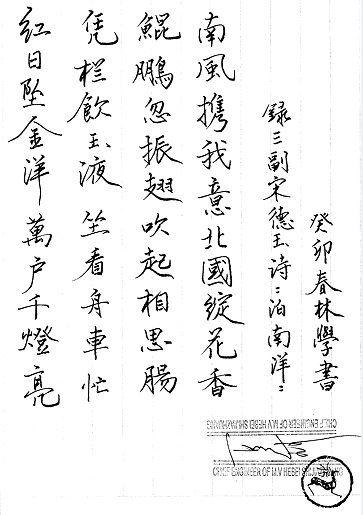 红日坠金洋萬户千燈亮
凭栏飲玉液坐看舟車忙
鯤鵬忽振翅吹起相思腸
南風携我意北國綻花香
録三副宋德玉诗:泊南洋:
癸卯春林學書
CHIEF ENGINEER OF M.V HEBEI SHIJIAZHUANG
CHIEF ENGINEER OF M.V HEBEI